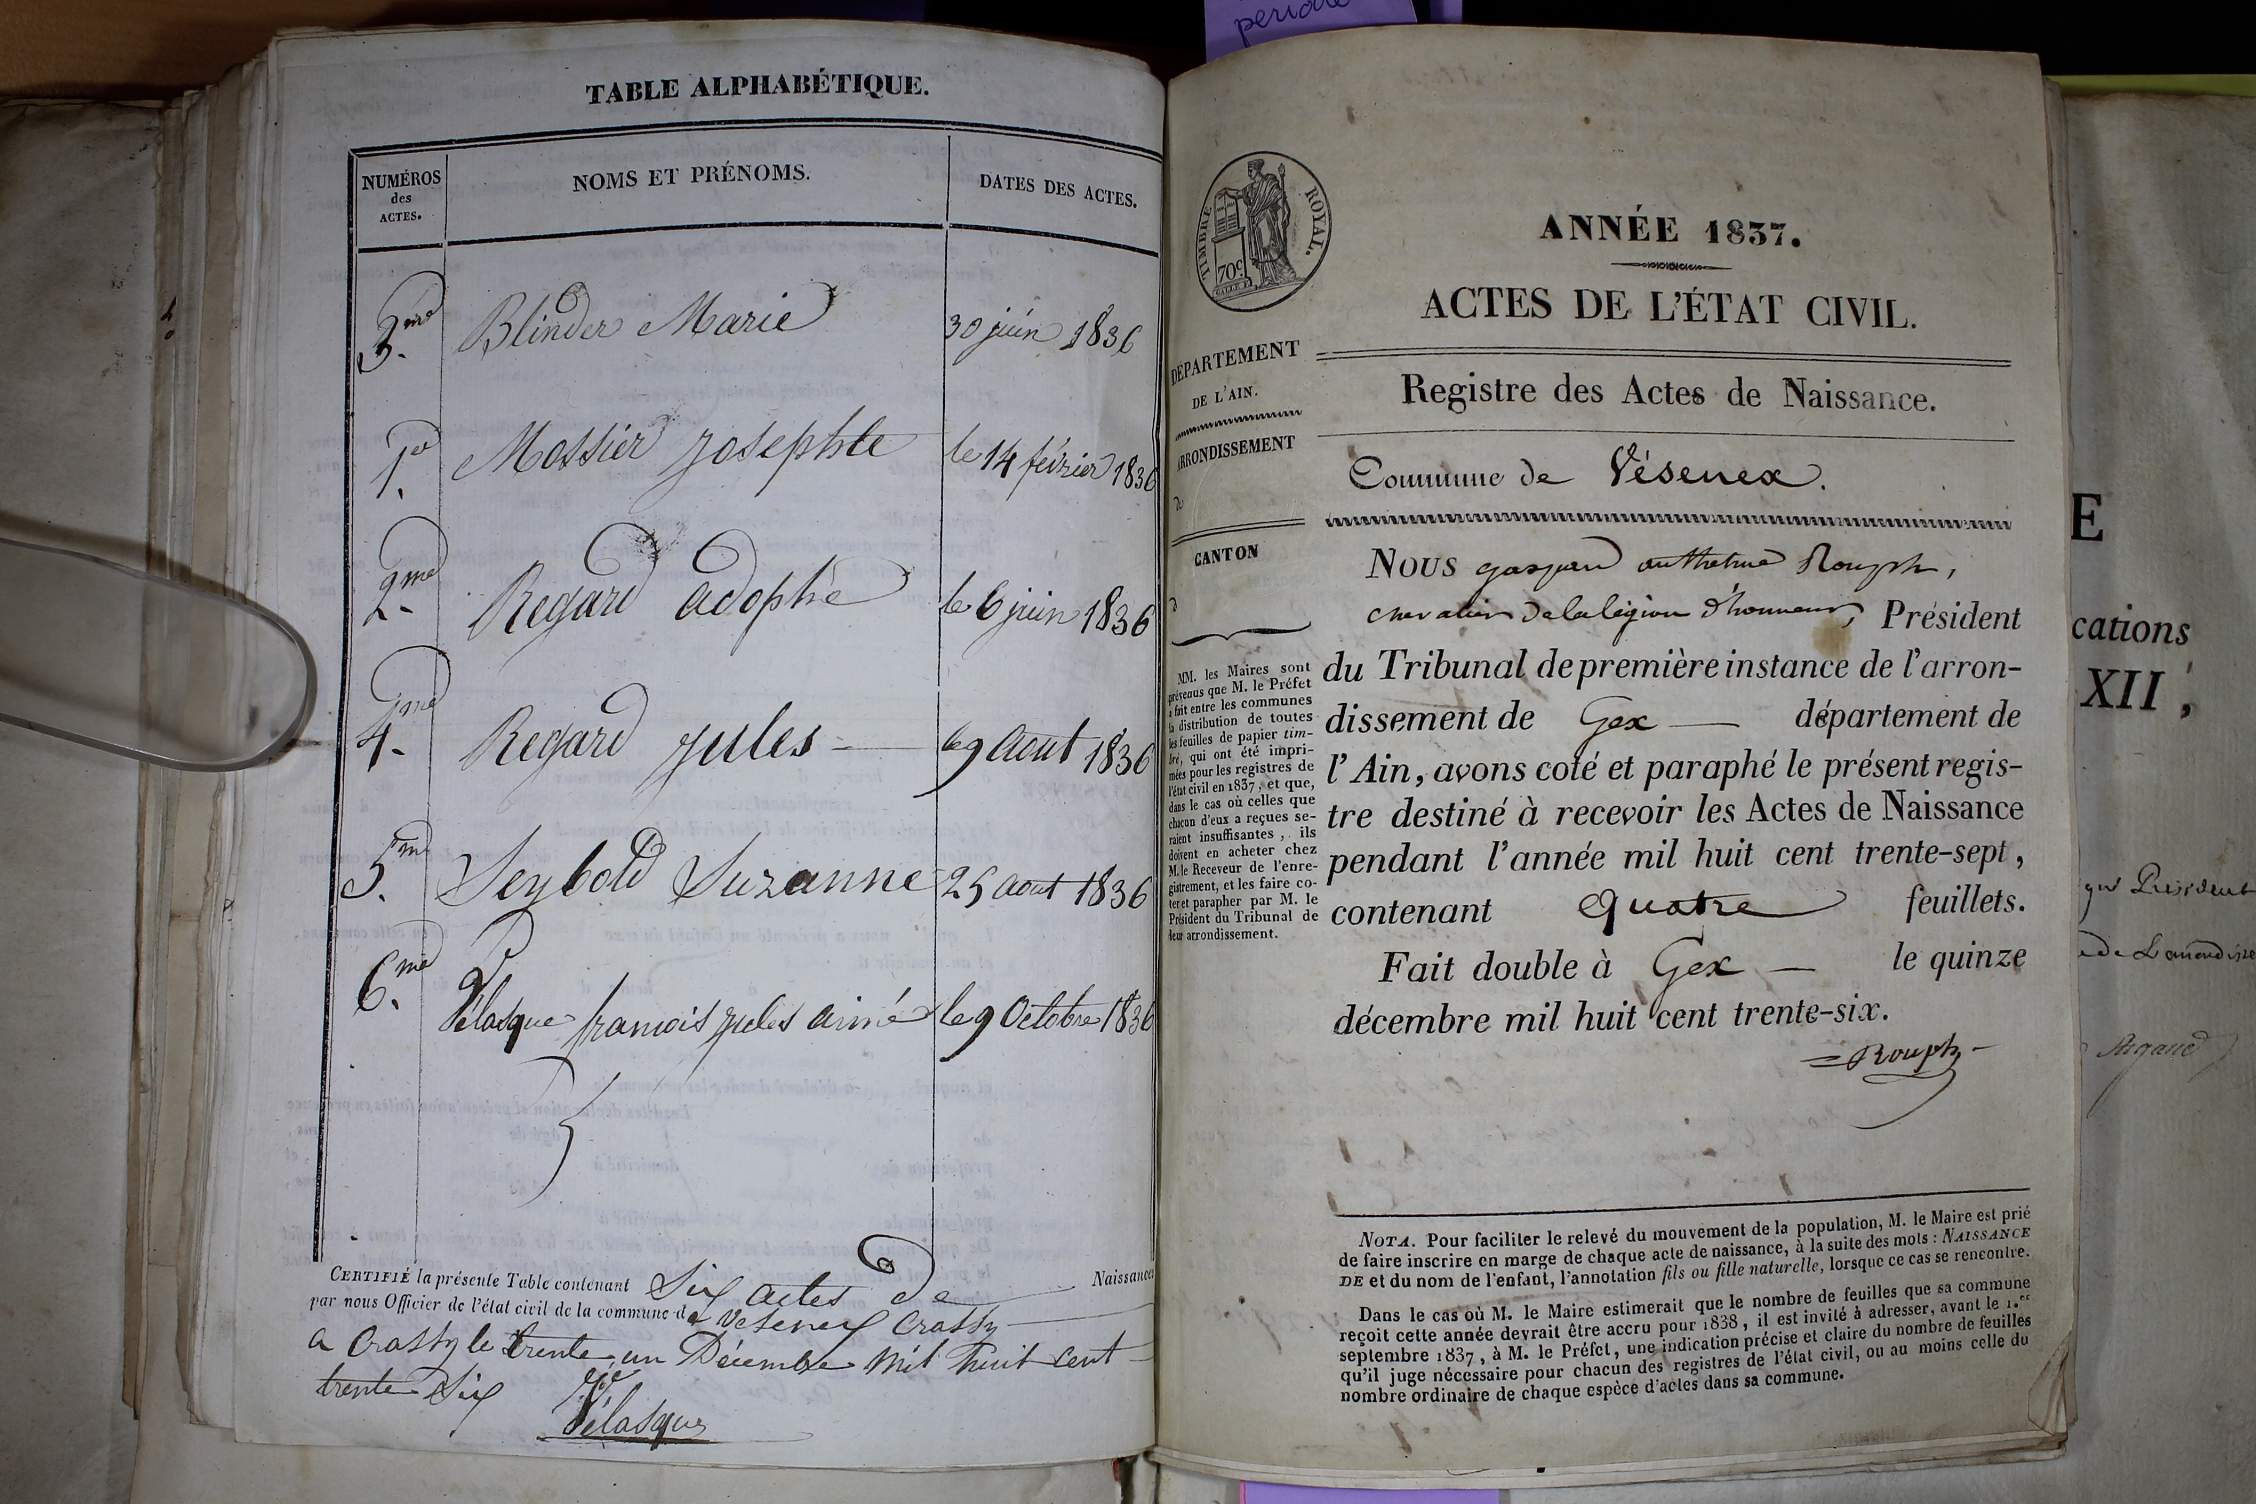 période
TABLE ALPHABÉTIQUE.
NUMÉROS des ACTES.
NOMS ET PRÉNOMS.
DATES DES ACTES.
3.me Blinder Marie 30 juin 1836
1.e Mossier josephte le 14 février 1836
2.me Regard adophe le 6 juin 1836
4.me Regard jules — le 9 aout 1836
5.me Seybold Suzanne 25 aout 1836
6.me Vélasque francois jules aimé le 9 Octobre 1836
CERTIFIÉ la présente Table contenant Six actes de Naissances
par nous Officier de l'état civil de la commune de Vesenex Crassy
a Crassy le trente un Décembre Mil huit cent
trente Six
Vélasque
TIMBRE ROYAL.
70c
ANNÉE 1837.
ACTES DE L'ÉTAT CIVIL.
DÉPARTEMENT
DE L'AIN.
ARRONDISSEMENT
d
CANTON
d
Registre des Actes de Naissance.
Commune de Vésenex.
NOUS gaspard anthelme Rouph,
chevalier de la légion d'honneur, Président
du Tribunal de première instance de l'arron-
dissement de Gex — département de
l'Ain, avons coté et paraphé le présent regis-
tre destiné à recevoir les Actes de Naissance
pendant l'année mil huit cent trente-sept,
contenant Quatre feuillets.
Fait double à Gex — le quinze
décembre mil huit cent trente-six.
= Rouph -
MM. les Maires sont
prévenus que M. le Préfet
a fait entre les communes
la distribution de toutes
les feuilles de papier tim-
bré, qui ont été impri-
mées pour les registres de
l'état civil en 1837, et que,
dans le cas où celles que
chacun d'eux a reçues se-
raient insuffisantes, ils
doivent en acheter chez
M. le Receveur de l'enre-
gistrement, et les faire co-
ter et parapher par M. le
Président du Tribunal de
leur arrondissement.
NOTA. Pour faciliter le relevé du mouvement de la population, M. le Maire est prié
de faire inscrire en marge de chaque acte de naissance, à la suite des mots : NAISSANCE
DE et du nom de l'enfant, l'annotation fils ou fille naturelle, lorsque ce cas se rencontre.
Dans le cas où M. le Maire estimerait que le nombre de feuilles que sa commune
reçoit cette année devrait être accru pour 1838, il est invité à adresser, avant le 1.er
septembre 1837, à M. le Préfet, une indication précise et claire du nombre de feuilles
qu'il juge nécessaire pour chacun des registres de l'état civil, ou au moins celle du
nombre ordinaire de chaque espèce d'actes dans sa commune.
E
cations
XII,
Président